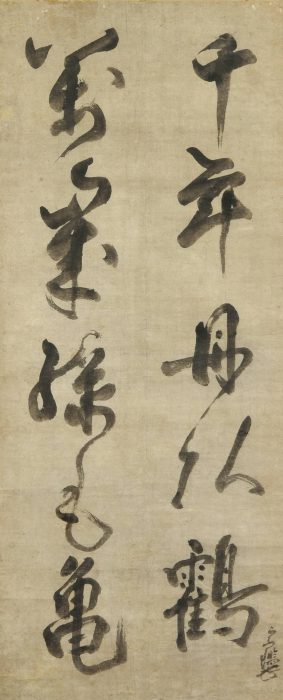 千年丹頂鶴
萬歳緑毛亀